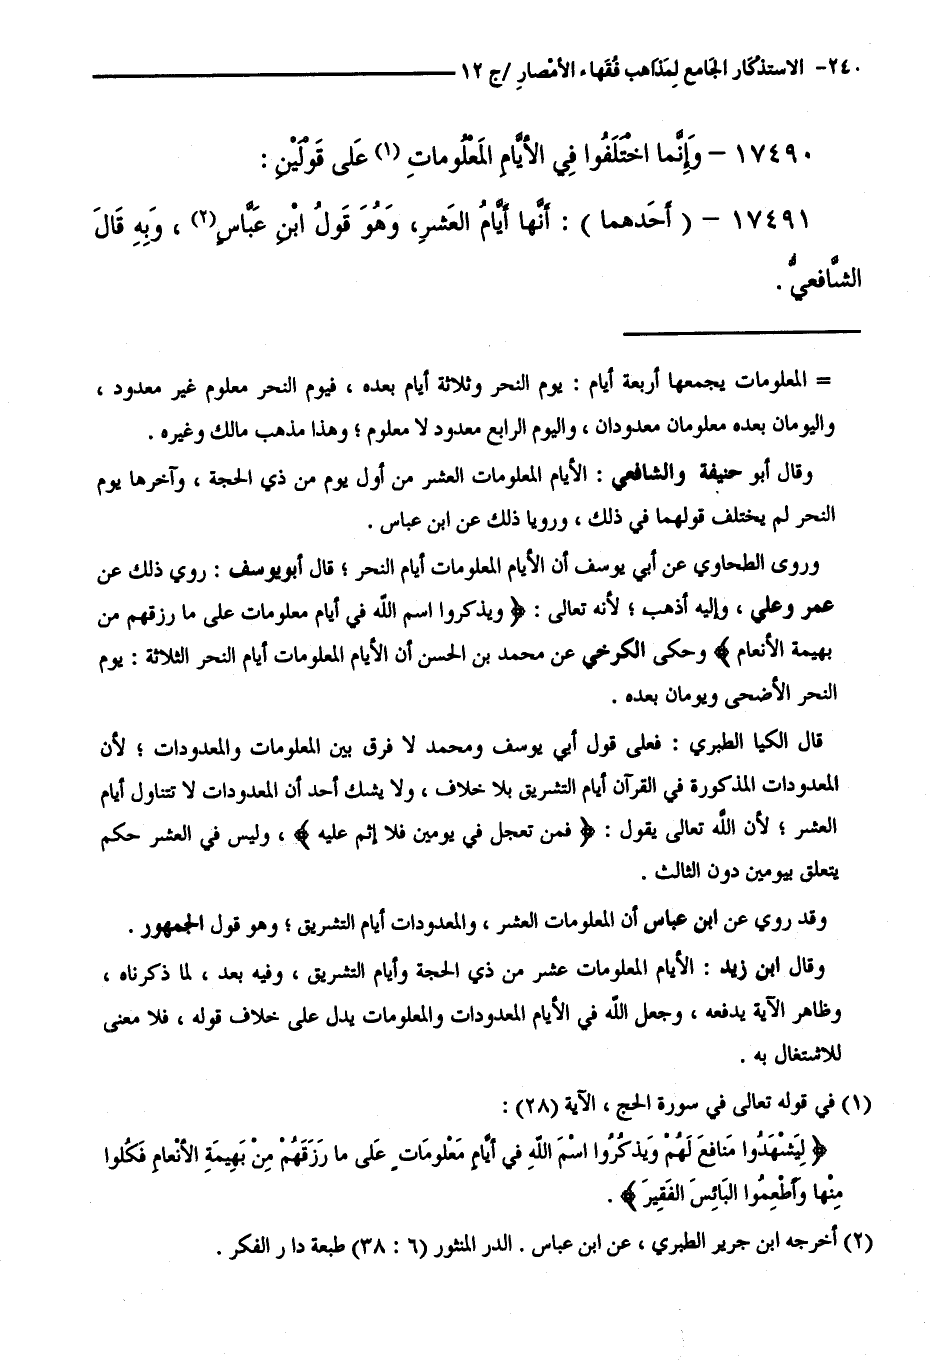 ٢٤٠- الاستذكار الجامع لِمَذاهب فُقَهاء الأمْصارِ /ج ١٢
١٧٤٩٠ – وَإِنَّما اخْتَلَفُوا فِي الأَيَّامِ المَعْلُوماتِ (١) عَلى قَوْلَيْنِ :
١٧٤٩١ – ( أَحَدهما ) : أَنَّها أَيَّامُ العَشرِ، وَهُوَ قَولُ ابْنِ عَبَّاسٍ(٢) ، وَبِهِ قَالَ
الشَّافعيُّ .
= المعلومات يجمعها أربعة أيام : يوم النحر وثلاثة أيام بعده ، فيوم النحر معلوم غير معدود ،
واليومان بعده معلومان معدودان ، واليوم الرابع معدود لا معلوم ؛ وهذا مذهب مالك وغيره .
وقال أبو حنيفة والشافعي : الأيام المعلومات العشر من أول يوم من ذي الحجة ، وآخرها يوم
النحر لم يختلف قولهما في ذلك ، ورويا ذلك عن ابن عباس .
وروى الطحاوي عن أبي يوسف أن الأيام المعلومات أيام النحر ؛ قال أبويوسف : روي ذلك عن
عمر وعلي ، وإليه أذهب ؛ لأنه تعالى : ﴿ ويذكروا اسم الله في أيام معلومات على ما رزقهم من
بهيمة الأنعام ﴾ وحكى الكرخي عن محمد بن الحسن أن الأيام المعلومات أيام النحر الثلاثة : يوم
النحر الأضحى ويومان بعده .
قال الكيا الطبري : فعلى قول أبي يوسف ومحمد لا فرق بين المعلومات والمعدودات ؛ لأن
المعدودات المذكورة في القرآن أيام التشريق بلا خلاف ، ولا يشك أحد أن المعدودات لا تتناول أيام
العشر ؛ لأن الله تعالى يقول : ﴿ فمن تعجل في يومين فلا إثم عليه ﴾ ، وليس في العشر حكم
يتعلق بيومين دون الثالث .
وقد روي عن ابن عباس أن المعلومات العشر ، والمعدودات أيام التشريق ؛ وهو قول الجمهور .
وقال ابن زيد : الأيام المعلومات عشر من ذي الحجة وأيام التشريق ، وفيه بعد ، لما ذكرناه ،
وظاهر الآية يدفعه ، وجعل الله في الأيام المعدودات والمعلومات يدل على خلاف قوله ، فلا معنى
للاشتغال به .
(١) في قوله تعالى في سورة الحج ، الآية (٢٨) :
﴿ لِيَشْهَدُوا مَنافِعَ لَهُمْ وَيَذكُرُوا اسْمَ اللهِ في أيَّامٍ مَعْلُوماتٍ عَلى ما رَزَقَهُمْ مِنْ بَهِيمَةِ الأنْعامِ فَكُلوا
مِنْها وَأَطْعِمُوا البَائِسَ الفَقِيرَ ﴾ .
(٢) أخرجه ابن جرير الطبري ، عن ابن عباس . الدر المنثور (٦ : ٣٨) طبعة دا ر الفكر .